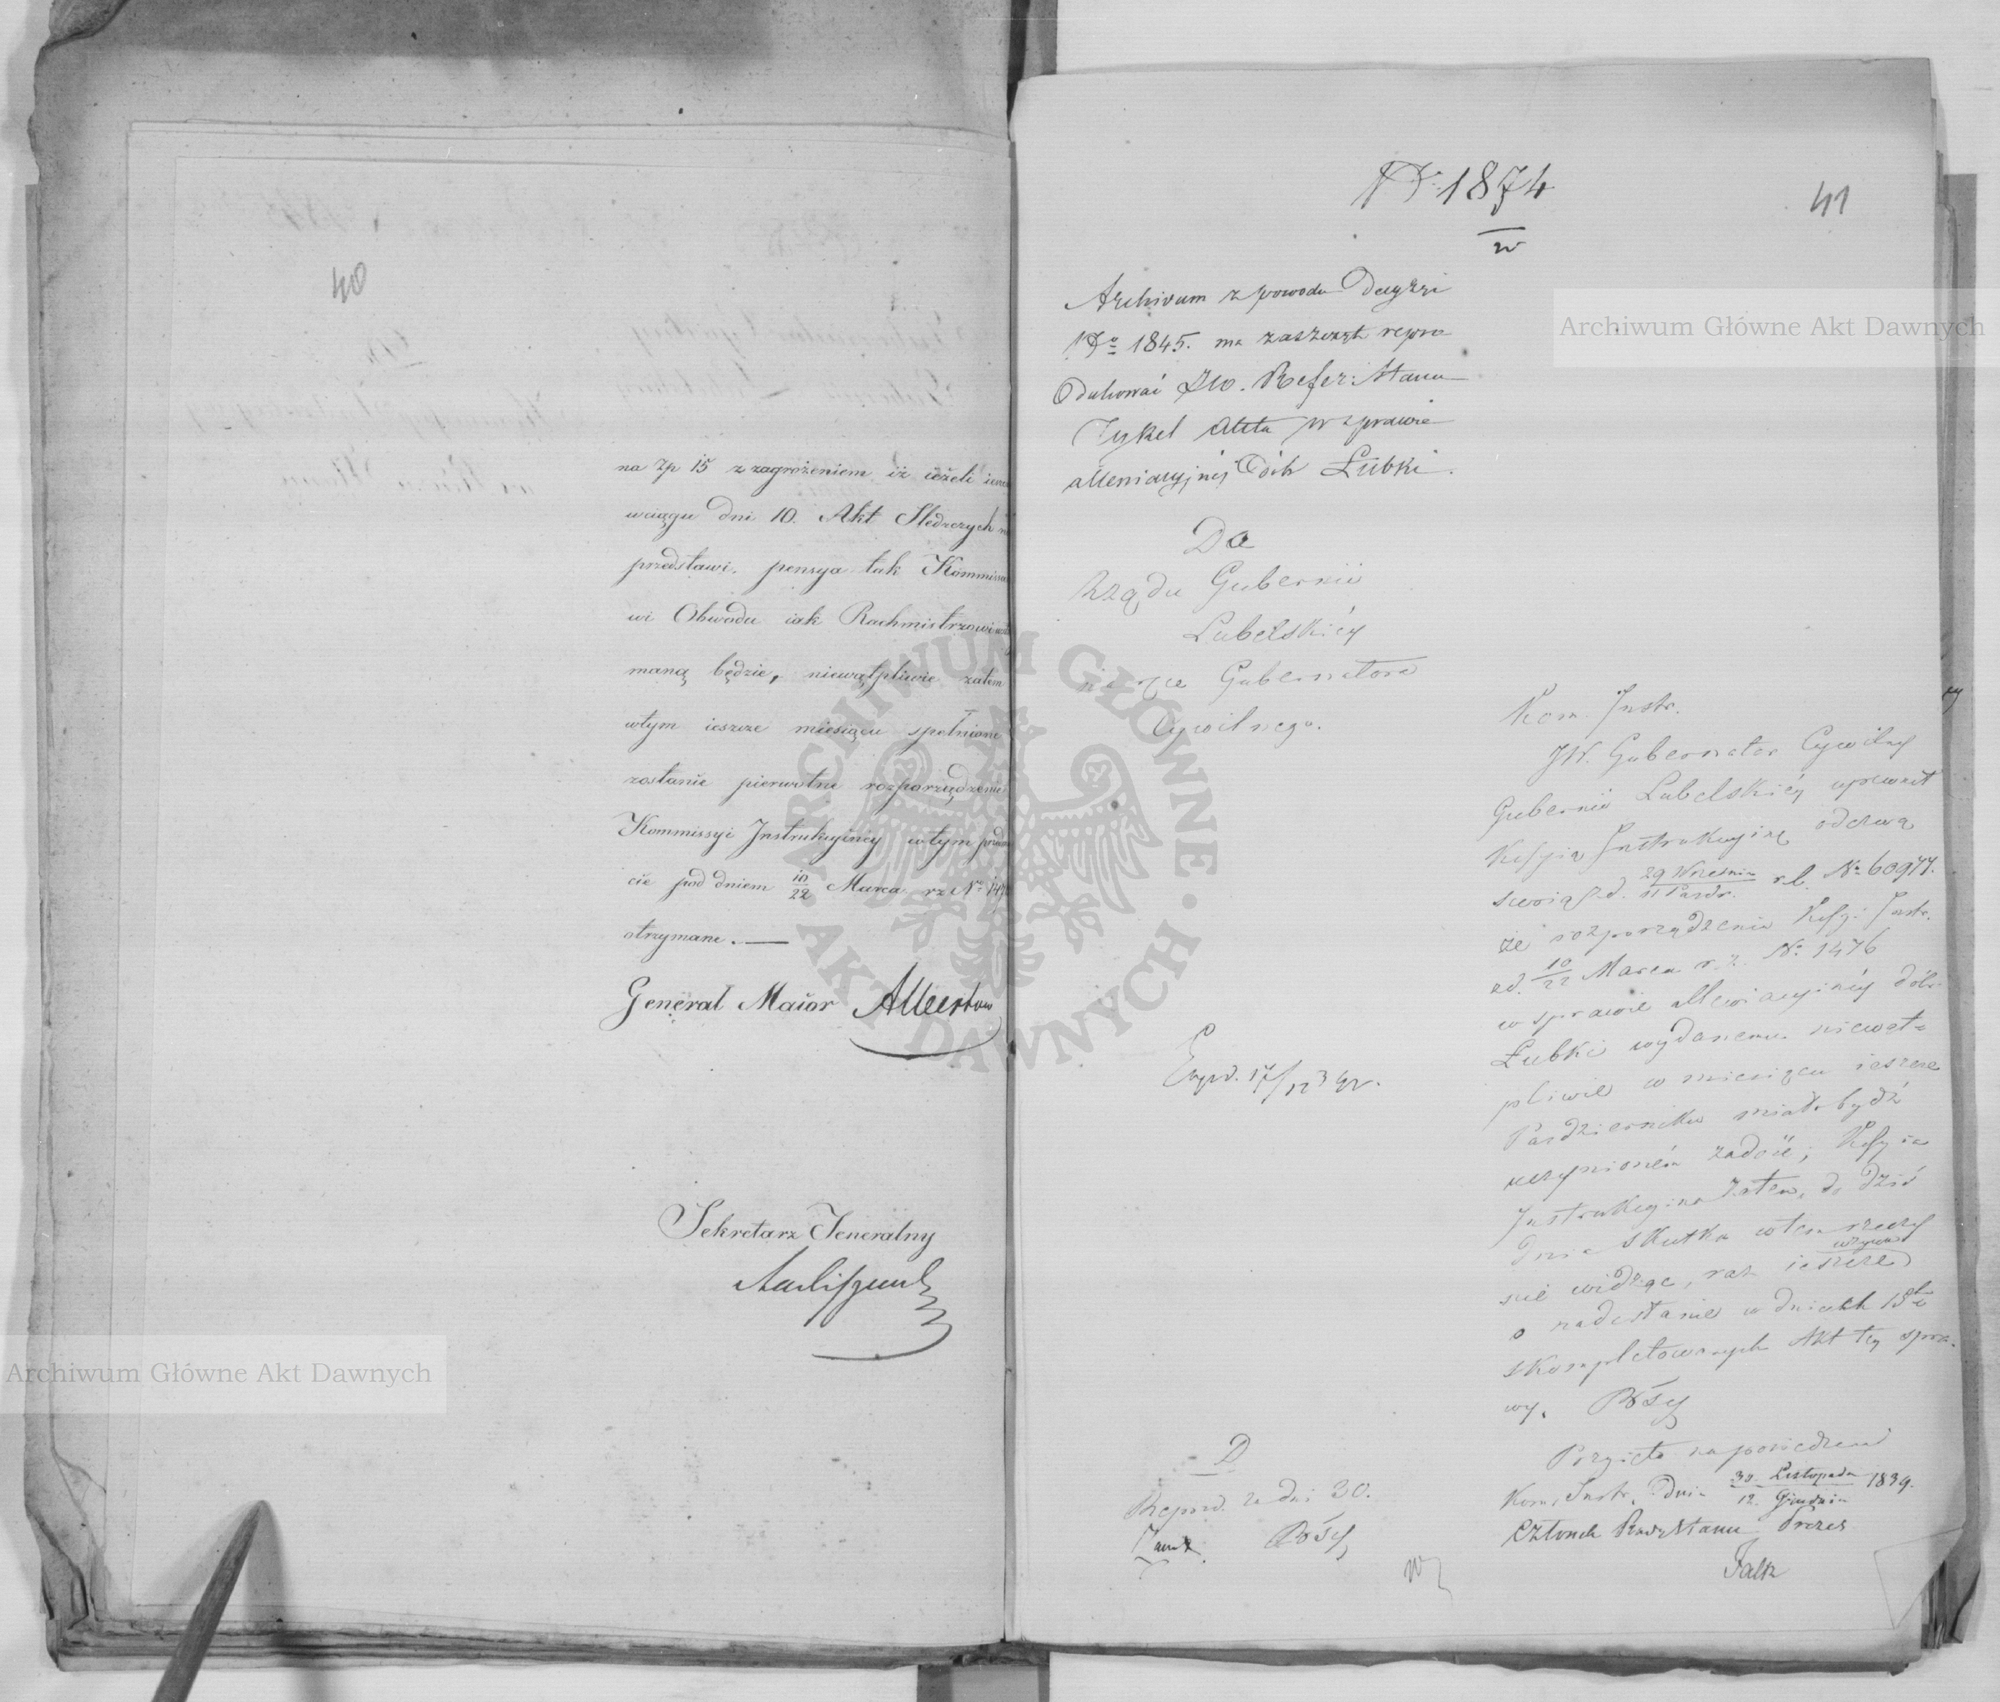 40
na zp 15 z zagrożeniem iż ieżeli
wciągu dni 10. Akt Sledczych
przedstawi, pensya tak Kommissa
wi Obwodu iak Rachmistrzowi
maną będzie, niewątpliwie zatem
wtym ieszcze miesiącu spełnione
zostanie pierwotne rozporządzenie
Kommissyi Instrukcyiney wtym
cie pod dniem 10/22 Marca rz No
otrzymane. —
Generał Maior Albertow
Sekretarz Jeneralny
No 1874
w
41
Archivum z powodu Decyzyi
No 1845. ma zaszczyt repro
dukować JW. Refer: Stanu
Tykel Akta w sprawie
allewiacyjnéj Dóbr Łubki.
Do
Rządu Gubernii
Lubelskiéy
na ręce Gubernatora
Cywilnego.
Kom. Instr.
JW. Gubernator Cywilny
Gubernii Lubelskiéy uprzewnił
Kssyią Instrukcyiną odezwą
swoią z d. 29 Września/11 Paźdr. r.b. No 60977.
że rozporządzeniu Kssyi Instr.
z d. 10/22 Marca r. z. No 1476
w sprawie allewiacyinéy dóbr
Łubki wydanemu niewąt-
pliwie w miesiącu ieszcze
Październiku miało bydź
uczynioném zadość; Kssyia
Instrukcyina zatem, do dziś
dnia skutku w tem rzeczy
nie widząc, raz ieszcze wzywa
o nadesłanie w dniach 15tu
skompletowanych Akt tey spra-
wy.
Expd. 17/12 39 r.
Przyięto na posiedzeniu
Kom. Instr. dnia 30 Listopada/12 Grudnia 1839.
Członek Rady Stanu Prezes
Falz
D
Reprod. za dni 30.
Archiwum Główne Akt Dawnych
Archiwum Główne Akt Dawnych
ARCHIWUM GŁÓWNE · AKT DAWNYCH ·